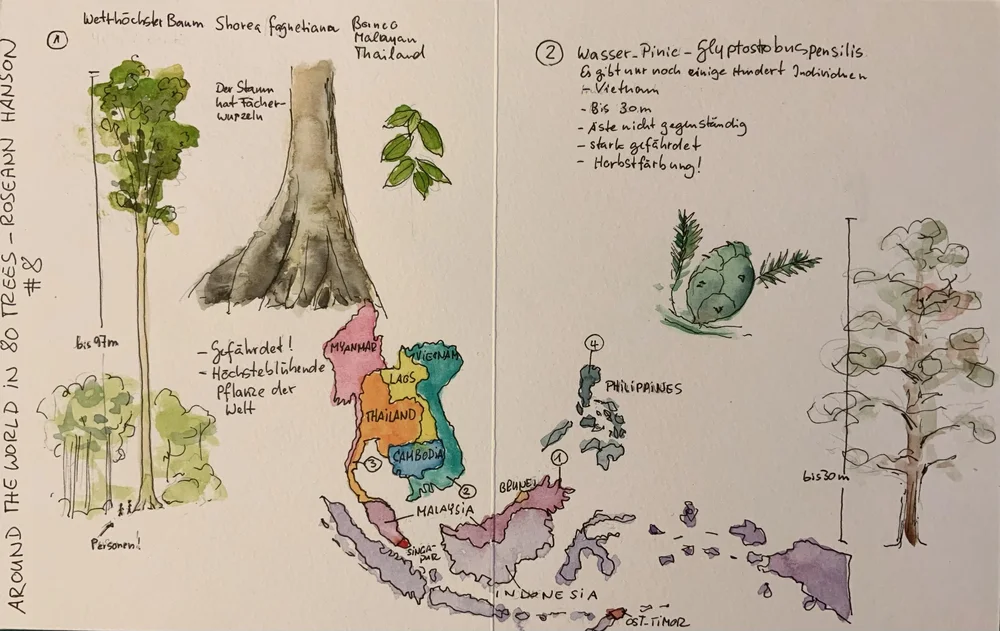 AROUND THE WORLD IN 80 TREES - ROSEANN HANSON
#8
①
Welthöchster Baum Shorea faguetiana
Borneo
Malayan
Thailand
Der Stamm
hat Fächer-
wurzeln
bis 97m
- Gefährdet!
- Höchste blühende
Pflanze der
Welt
Personen!
② Wasser-Pinie - Glyptostobus pensilis
Es gibt nur noch einige Hundert Individuen
- Vietnam
- Bis 30m
- Äste nicht gegenständig
- stark gefährdet
- Herbstfärbung!
bis 30m
MYANMAR
VIETNAM
LAOS
THAILAND
CAMBODIA
③
②
④
PHILIPPINES
①
BRUNEI
MALAYSIA
SINGA-
PUR
INDONESIA
OST-TIMOR